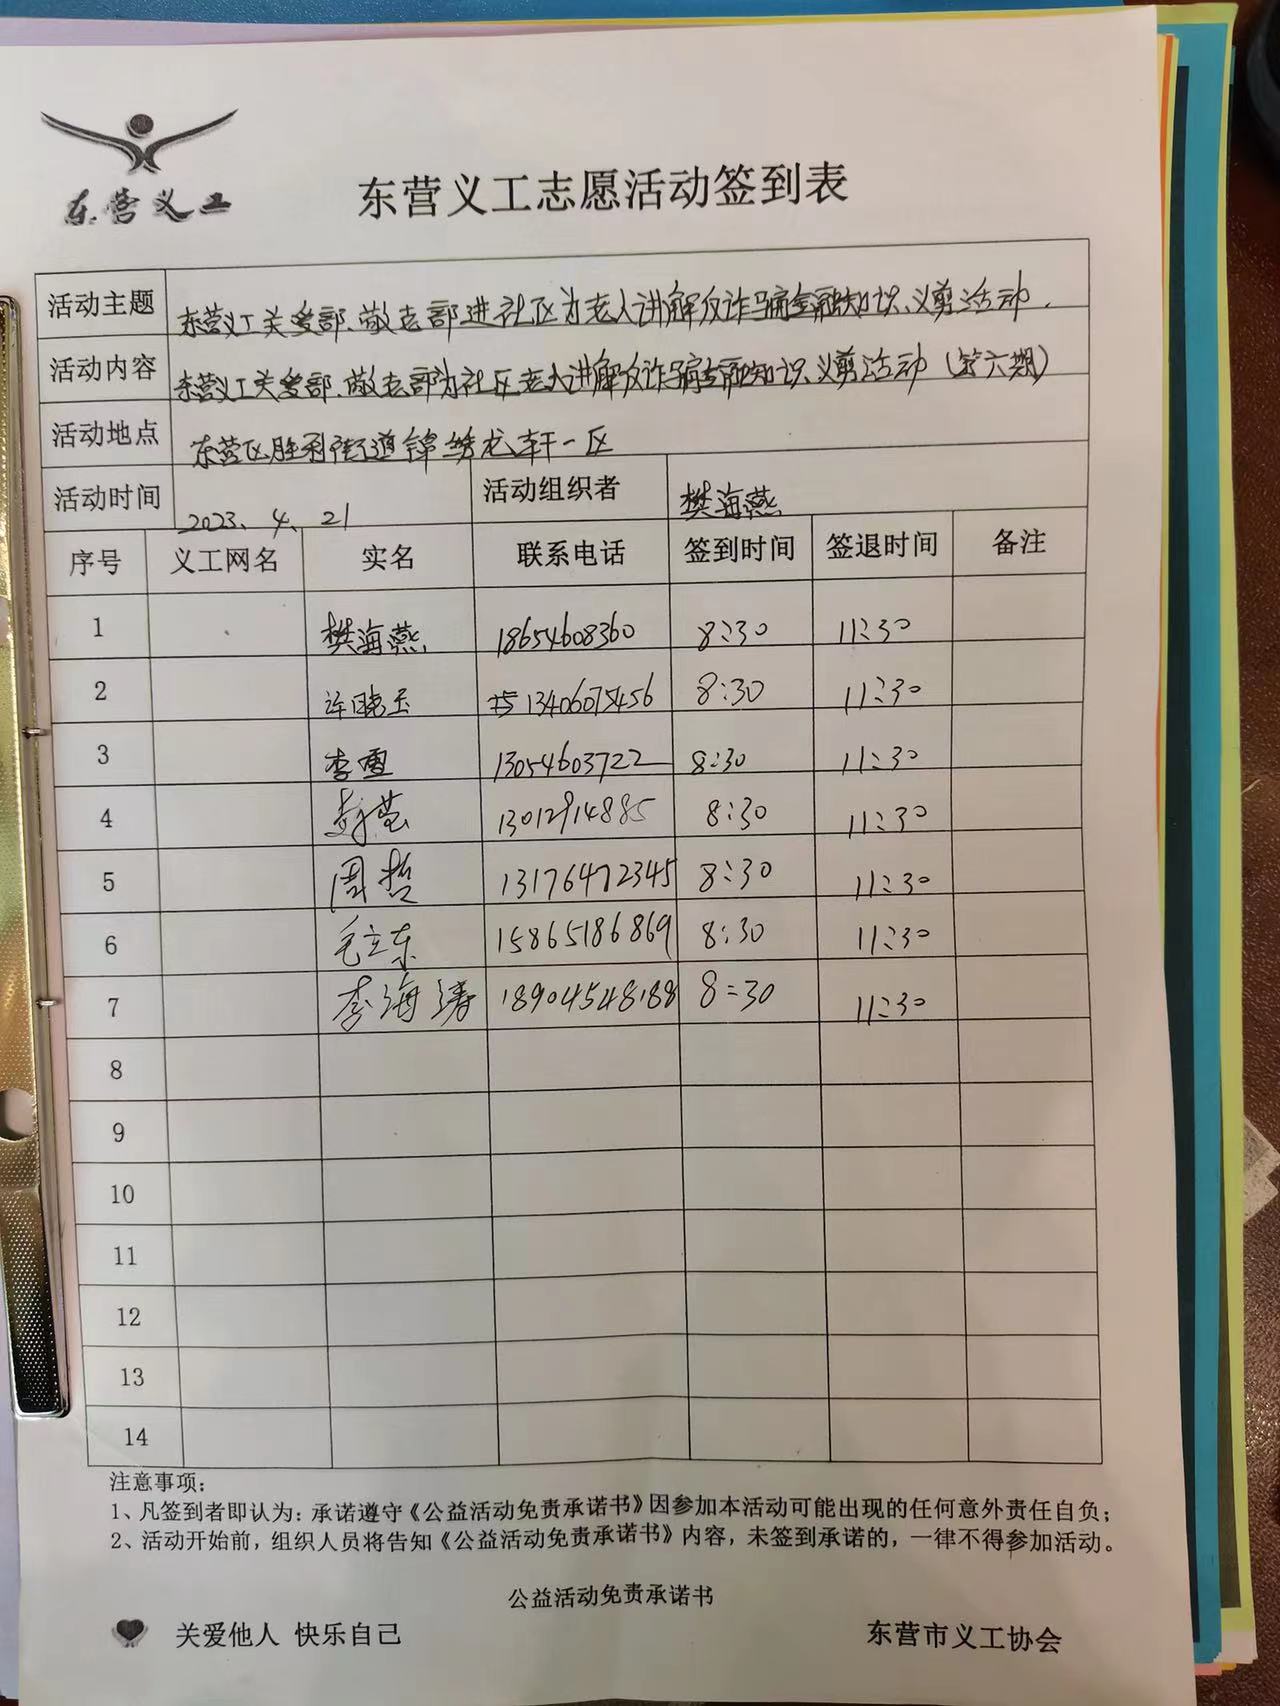 东营义工
东营义工志愿活动签到表
活动主题 东营义工关爱部、敬老部进社区为老人讲解反诈骗金融知识、义剪活动.
活动内容 东营义工关爱部、敬老部为社区老人讲解反诈骗金融知识、义剪活动(第六期)
活动地点 东营区胜利街道锦绣龙轩一区
活动时间 2023、4、21 活动组织者 樊海燕
序号 义工网名 实名 联系电话 签到时间 签退时间 备注
1 樊海燕 18654608360 8:30 11:30
2 许晓玉 13406075456 8:30 11:30
3 李雪 13054603722 8:30 11:30
4 彭莹 13012914885 8:30 11:30
5 周哲 13176472345 8:30 11:30
6 毛立东 15865186869 8:30 11:30
7 李海涛 18904548188 8:30 11:30
8
9
10
11
12
13
14
注意事项:
1、凡签到者即认为:承诺遵守《公益活动免责承诺书》因参加本活动可能出现的任何意外责任自负;
2、活动开始前,组织人员将告知《公益活动免责承诺书》内容,未签到承诺的,一律不得参加活动。
公益活动免责承诺书
关爱他人 快乐自己 东营市义工协会